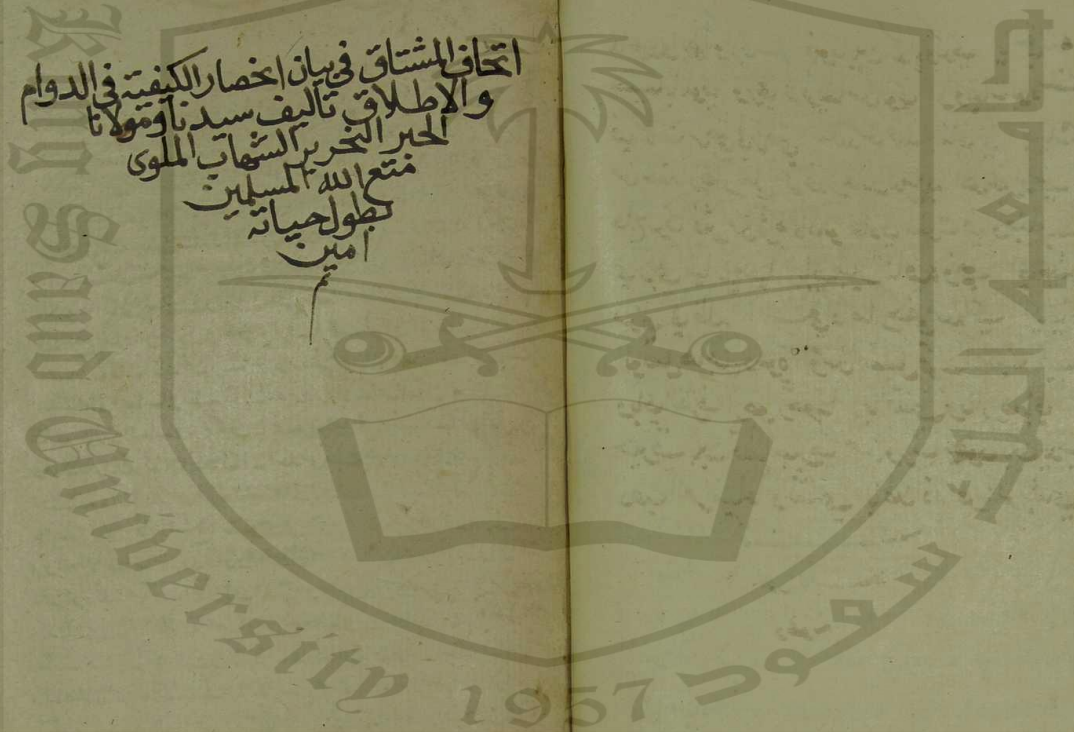 اتحاف المشتاق في بيان انحصار الكيفية في الدوام
والاطلاق تأليف سيدنا ومولانا
الحبر النحرير الشهاب الملوى
متع الله المسلمين
بطول حياته
امين
تم
King Saud University 1957
جامعة الملك سعود